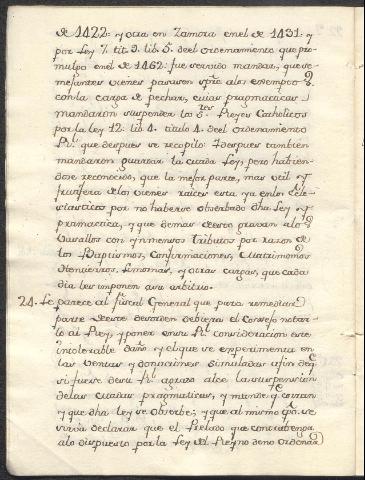 de 1422: y otra en Zamora en el de 1431: y
por Ley 7. tit 9. lib 5. deel ordenamiento que pro-
mulgo enel de 1462: fue servido mandar, que se-
mejantes vienes pasasen spre alos exemptos
con la carga de pechar, cuias pragmaticas
mandaron suspender los Sres Reyes Catholicos
por la ley 12: lib 4. titulo 4. deel ordenamiento
Rl. que despues se recopilo: Y despues tambien
mandaron guardar la citada Ley, pero havien-
dose reconocido, que la mejor parte, mas util y
fructifera delos vienes raices esta ya enlos Ecle-
siasticos por no haberse observado dha Ley y
pramactica, y que demas deesto gravan alos
Vasallos con ynmensos tributos por razon de
los Baptismos, Confirmaciones, Matrimonios
Entierros, limosnas, y otras cargas, que cada
dia les imponen asu arbitrio.
24. Le parece al fiscal General que para remediar
parte deeste desorden debiera el Consejo notar-
lo al Rey, y poner ensu Rl. consideracion este
intolerable daño y elque se experimenta en
las ventas y donaciones simuladas afin de q
si fuese desu Rl. agrado alce la suspension
delas citadas pragmaticas, y mande q corran
y que dha ley se observe; y que al mismo tpo. se
sirva declarar que el Prelado que contrabenga
alo dispuesto por la Ley del Reyno deno ordenar